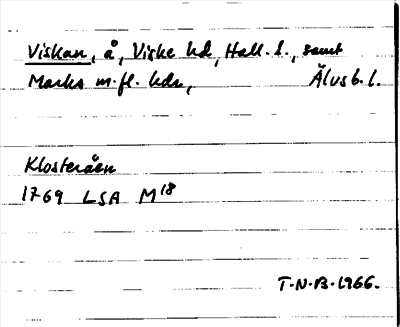 Viskan, å, Viske hd, Hall. l., samt
Marks m. fl. hdr, Älvsb. l.
Klosteråen
1769 LSA M18
T.N.B. 1966.